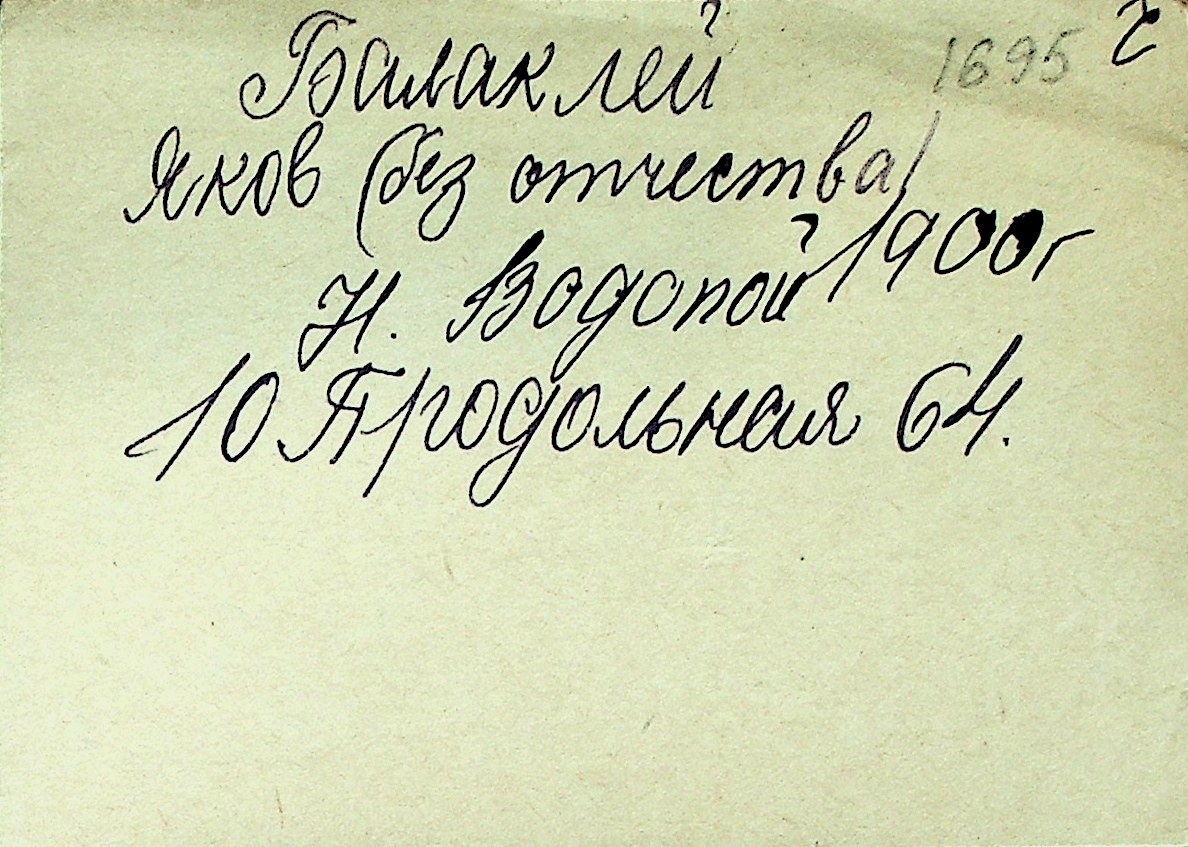 Балаклей 1695 г
Яков (без отчества)
1900г
Н. Водопой
10 Продольная 64.